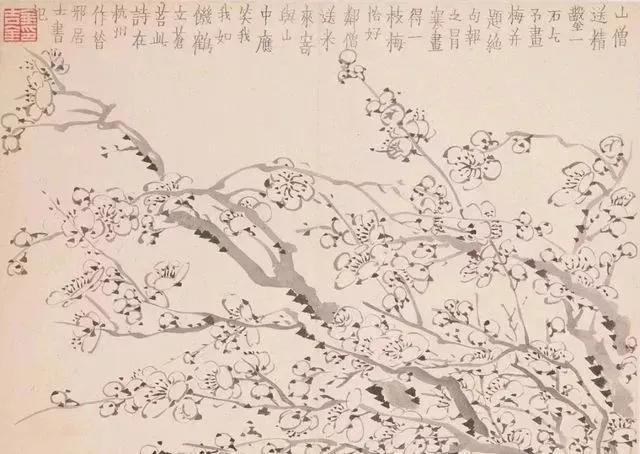 山僧
送精
糳一
石乞
予畫
梅并
題絕
句報
之冒
寒畫
得一
枝梅
恰好
鄰僧
送米
來寄
與山
中應
笑我
我如
饑鶴
立蒼
苔此
詩在
杭州
作昔
邪居
士書
記